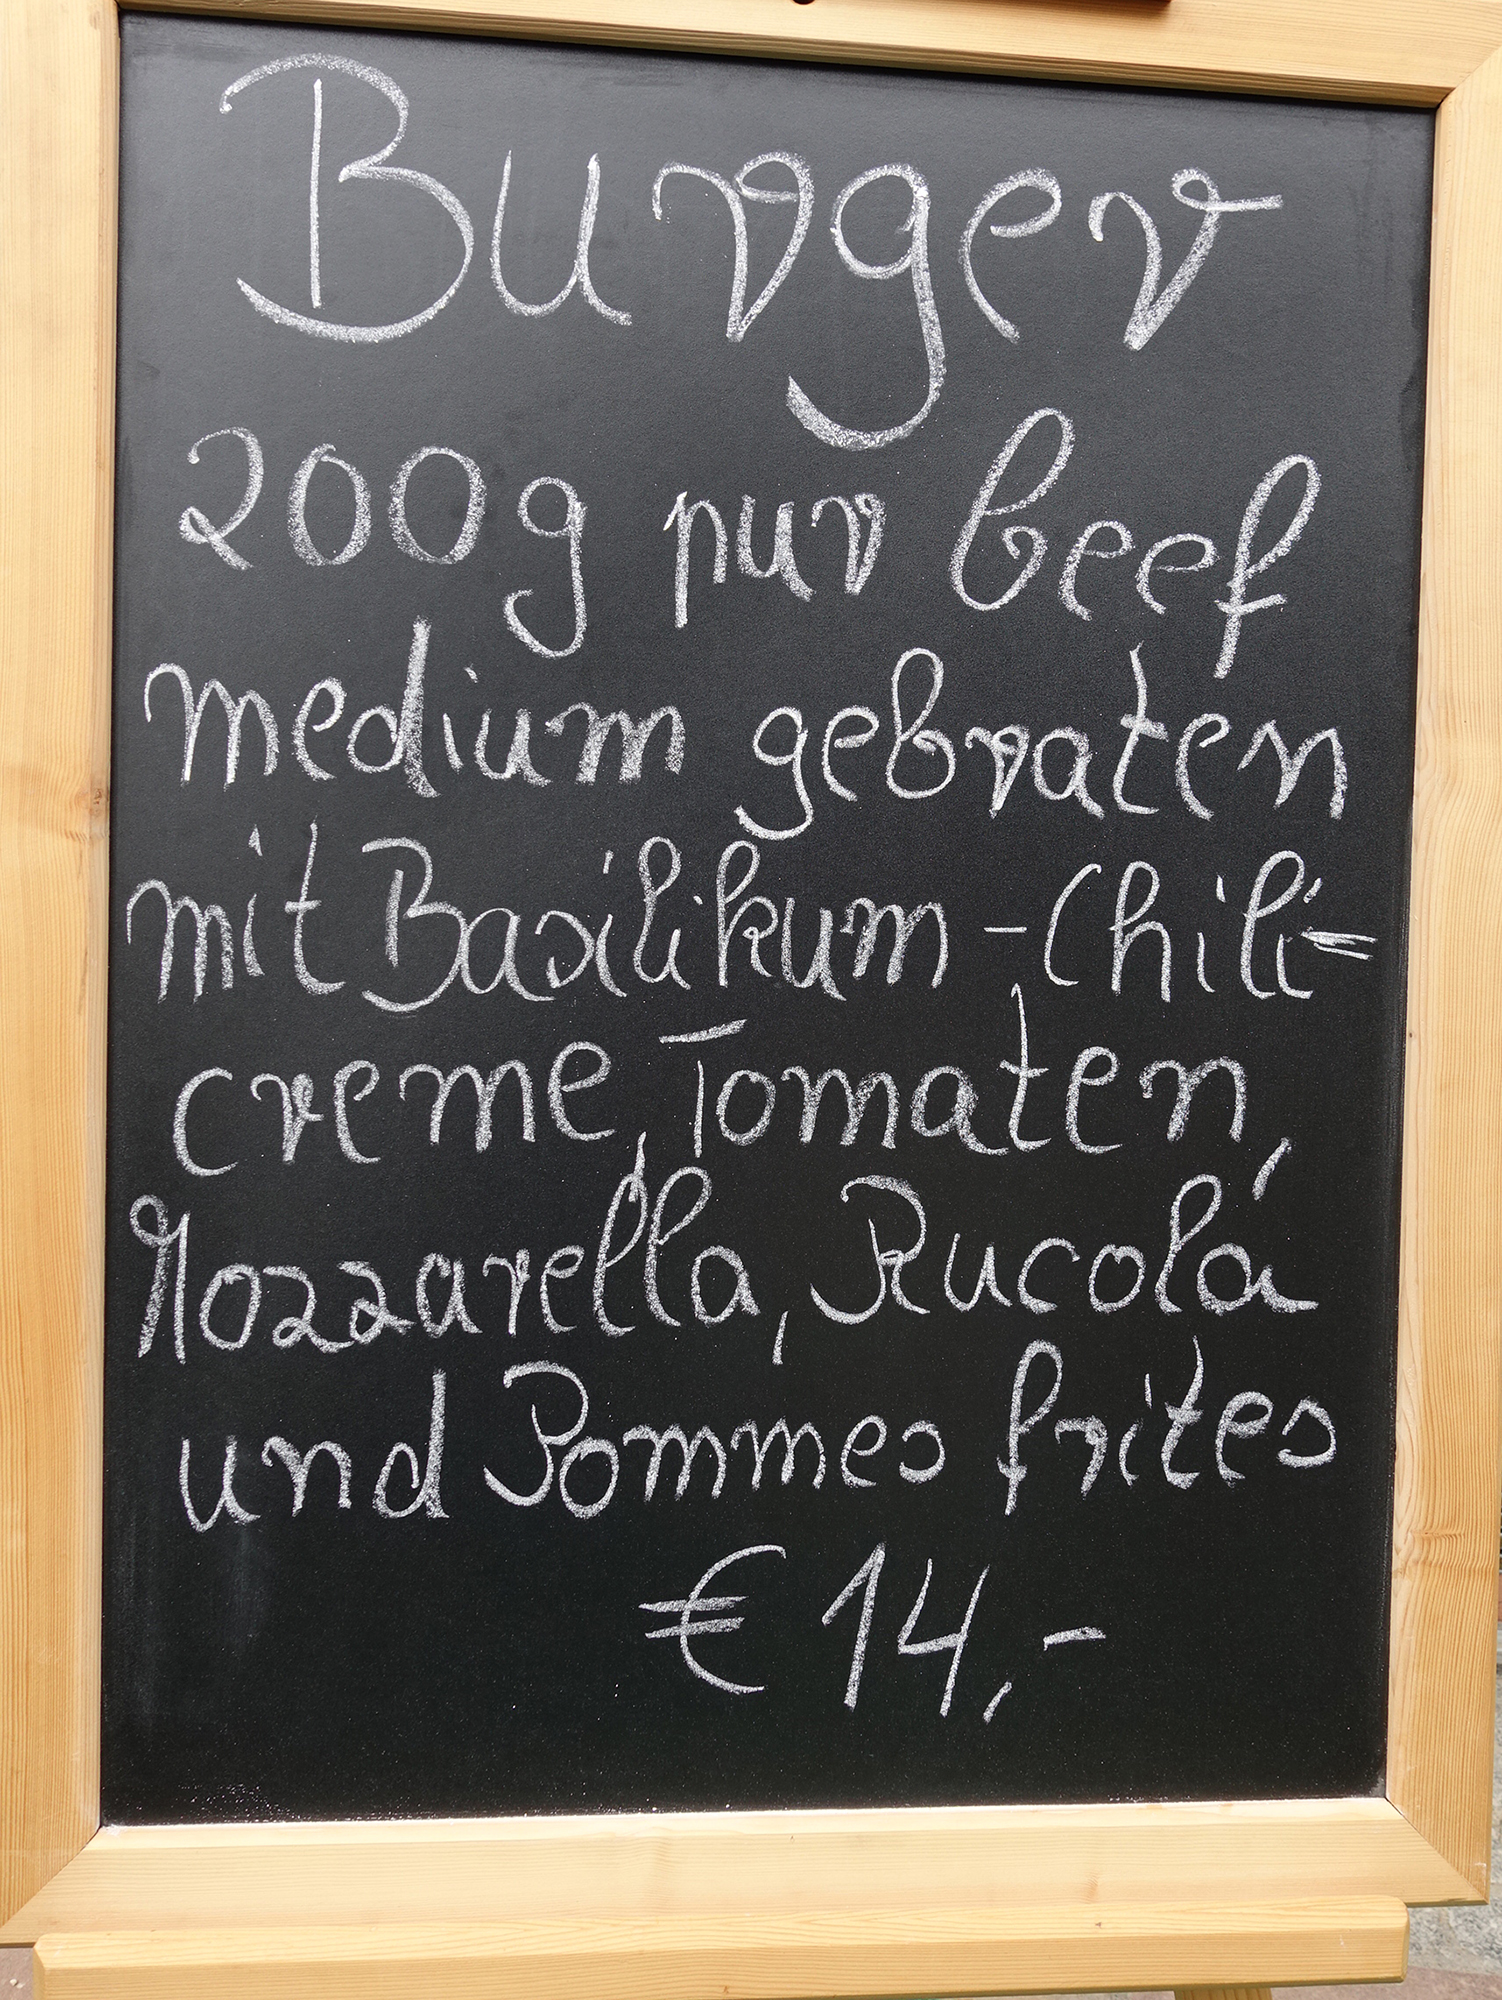 Burger
200g pur beef
medium gebraten
mit Basilikum-Chili-
creme, Tomaten,
Mozzarella, Rucola
und Pommes frites
€ 14,-